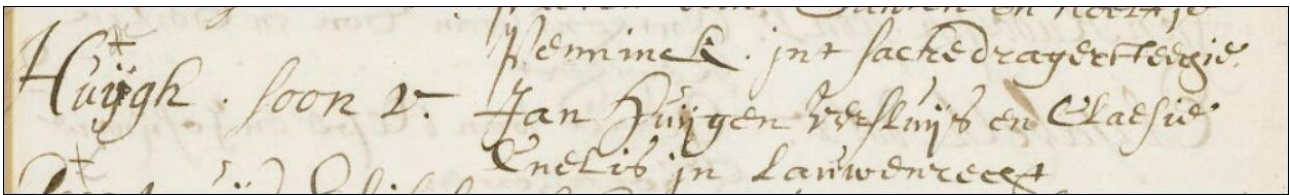 Penninck. jnt sackedragersteegie.
Huijgh. soon v. Jan Huijgen versluijs en Claesie
Cnelis jn Lauwenrecht